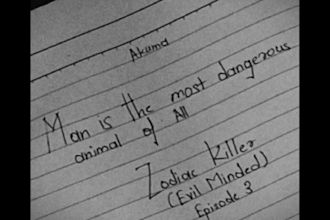 Akuma
Man is the most dangerous
animal of All
Zodiac Killer
(Evil Minded)
Episode 3